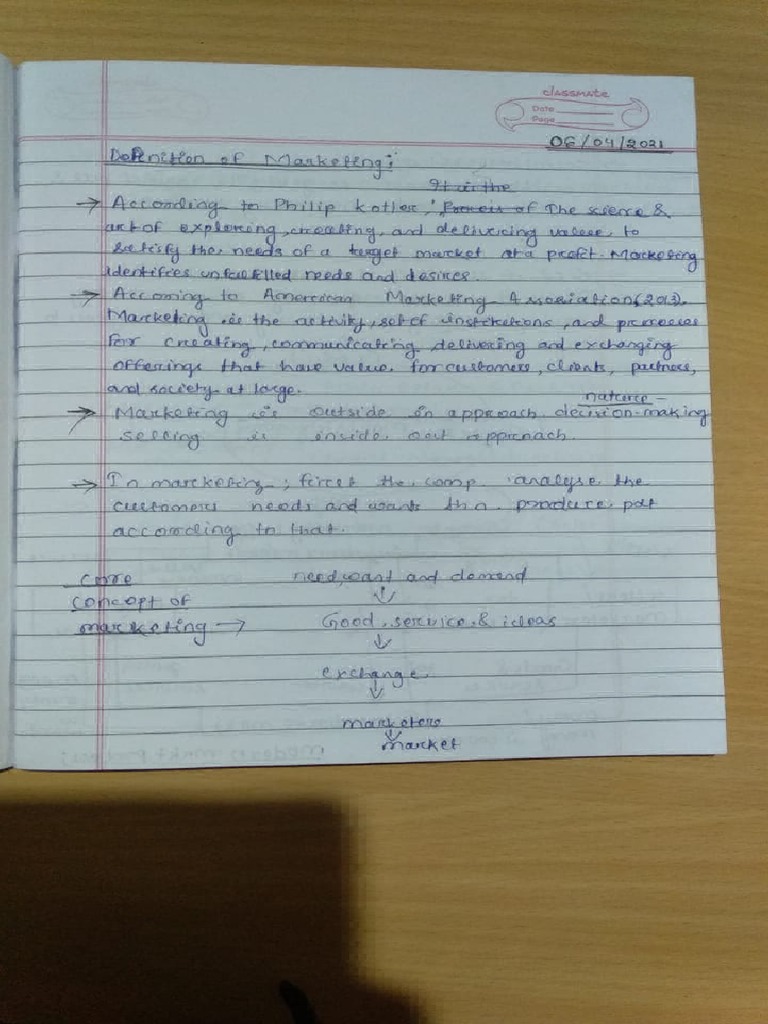 classmate
Date
Page
06/04/2021
Definition of Marketing:
It is the
→ According to Philip Kotler, "Process of The science &
art of exploring, creating, and delivering value to
satisfy the needs of a target market at a profit. Marketing
identifies unfulfilled needs and desires.
→ Accoming to American Marketing Association (2013).
Marketing is the activity, set of institutions, and processes
for creating, communicating, delivering and exchanging
offerings that have value for customers, clients, partners,
and society at large.
nature -
→ Marketing is outside in approach decision-making
selling is inside out approach.
→ In marketing, first the comp. analyse the
customers needs and wants thn produce pdt
according to that.
core need, want and demand
↓
concept of
marketing → Good, service & ideas
↓
exchange
↓
marketers
↓
market